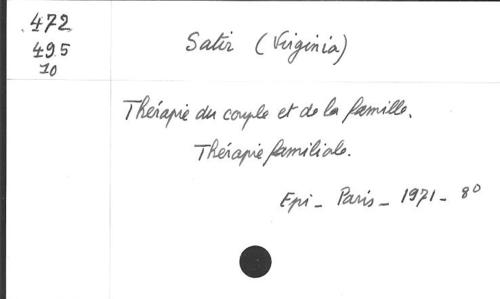 472
495
10
Satir (Virginia)
Thérapie du couple et de la famille.
Thérapie familiale.
Epi - Paris - 1971 - 8°